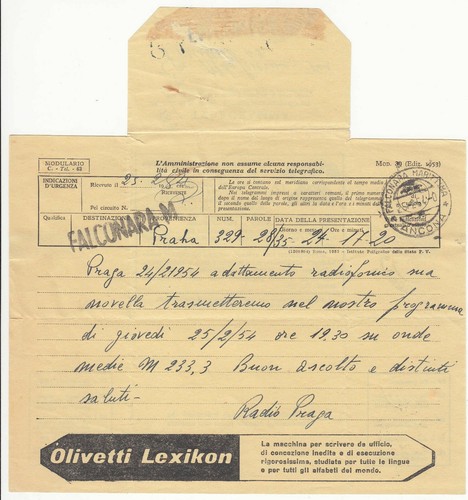 MODULARIO
C. - Tel. - 63
L'Amministrazione non assume alcuna responsabi-
lità civile in conseguenza del servizio telegrafico.
Mod. 30 (Ediz. 1953)
INDICAZIONI
D'URGENZA
Ricevuto il 25
Pel circuito N.
RICEVENTE
Le ore si contano sul meridiano corrispondente al tempo medio
dell'Europa Centrale.
Nei telegrammi impressi a caratteri romani, il primo numero
dopo il nome del luogo di origine rappresenta quello del telegramma,
il secondo quello delle parole, gli altri la data e l'ora e i minuti della
presentazione.
FALCONARA MARITTIMA
ANCONA
Qualifica
DESTINAZIONE
PROVENIENZA
NUM.
PAROLE
DATA DELLA PRESENTAZIONE
Giorno e mese
Ore e minuti
FALCONARA M.
Praha 329 28/35 24 17 20
Praga 24/2 1954 adattamento radiofonico sua
novella trasmetteremo nel nostro programma
di giovedì 25/2/54 ore 19,30 su onde
medie M 233,3 Buon ascolto e distinti
saluti -
Radio Praga
Olivetti Lexikon
La macchina per scrivere da ufficio,
di concezione inedita e di esecuzione
rigorosissima, studiata per tutte le lingue
e per tutti gli alfabeti del mondo.